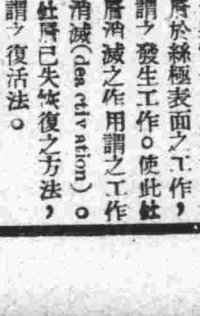 層於絲極表面之工作，
謂之發生工作。使此釷
層消滅之作用謂之工作
消滅(deactivation)。
釷層已失恢復之方法，
謂之復活法。